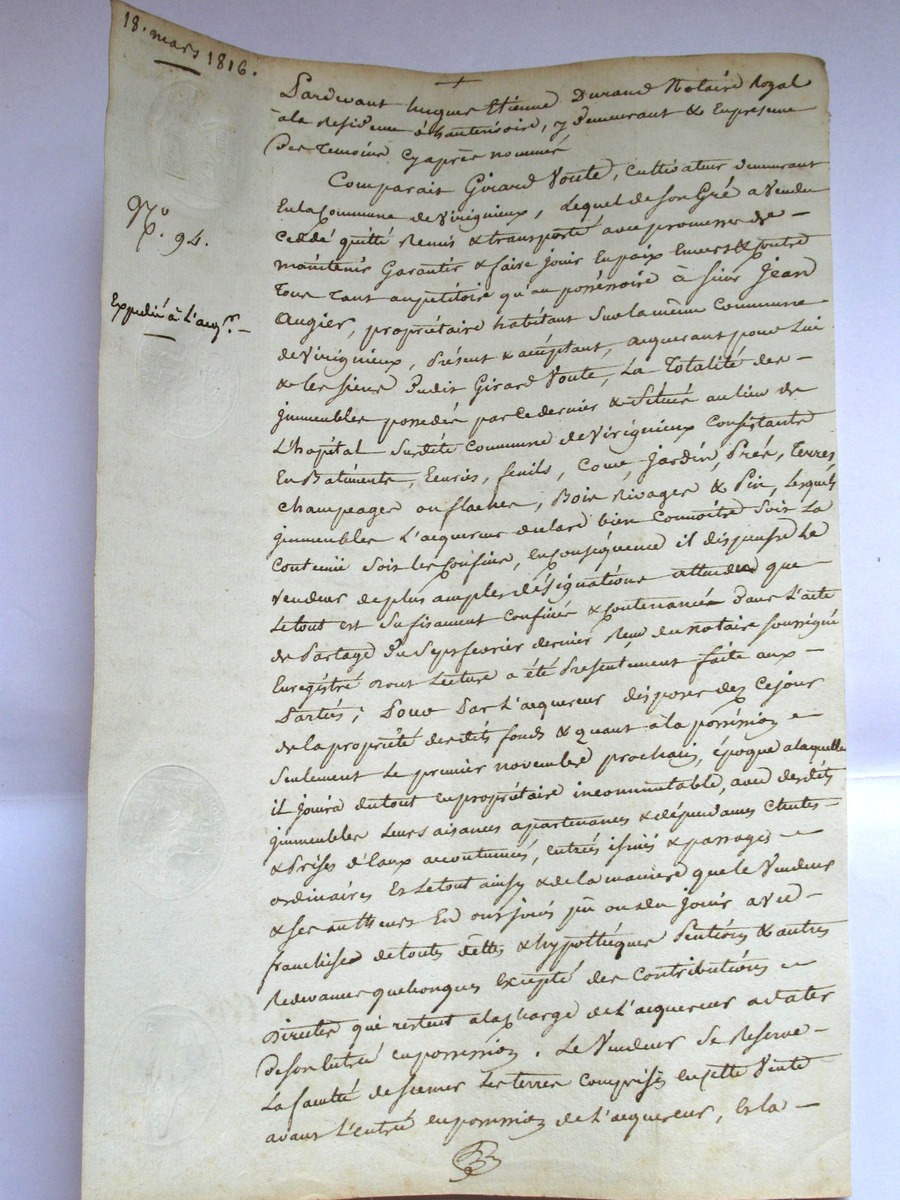 18. mars 1816.
Pardevant hugues Etienne Durand Notaire Royal
a la Residence d'hauterivoire, y Demeurant & En présence
Des Temoins Cyaprès nommés
N.o 94.
Comparait Girard Voute, Cultivateur Demeurant
En la Commune de Virigneux, Lequel de son Gré a Vendu
Cédé quitté Remis & transporté avec promesse de
maintenir Garantir & faire jouir En paix Envers & Contre
Tous Tant au pétitoire qu'au possessoire à sieur Jean
Expedié à L'acqr.
Augier, propriétaire habitant Sur la même Commune
de Virigneux, Présent & acceptant, acquerant pour Lui
& les siens Dudit Girard Voute, La Totalité des
jmmeubles possedés par Ce dernier & Situés au lieu de
L'hopital Sur dite Commune de Virigneux Consistants
En Batiments, Ecuries, fenils, Cour, Jardin, Prés, Terres
Champeages ou flaches, Bois Rivages & Pin, Lesquels
jmmeubles L'acquereur declare bien Connoitre Soit La
Contenue Soit les Confins, en Conséquence il dispense Le
Vendeur de plus amples désignations attendu que
Le tout est Sufisament Confiné & Contenancé Dans L'acte
de Partage Du Sept fevrier dernier Reçu du Notaire soussigné
Enregistré Dont Lecture a été Présentement faite aux
Parties; Pour Par L'acquereur disposer des Ce jour
de la propriété des dits fonds & quant à la possession
Seulement Le premier novembre prochain, époque a laquelle
il jouira du tout en propriétaire incommutable, avec des dits
jmmeubles Leurs aisances apartenances & dépendances Chutes
& Prises d'Eaux accoutumées, Entrées issues & passages
ordinaires Et Le tout ainsy & de la maniere que Le Vendeur
& ses autheurs En ont jouis pû ou du jouir avec
franchise de toutes dettes & hypothèques Pentions & autres
Redevances quelconques Excepté des Contributions
Directes qui restent a la charge de L'acquereur a dater
De son Entrée en possession. Le Vendeur Se Reserve
La faculté de semer Les terres Comprises en cette Vente
avant L'entrée en possession de L'acquereur, Et la